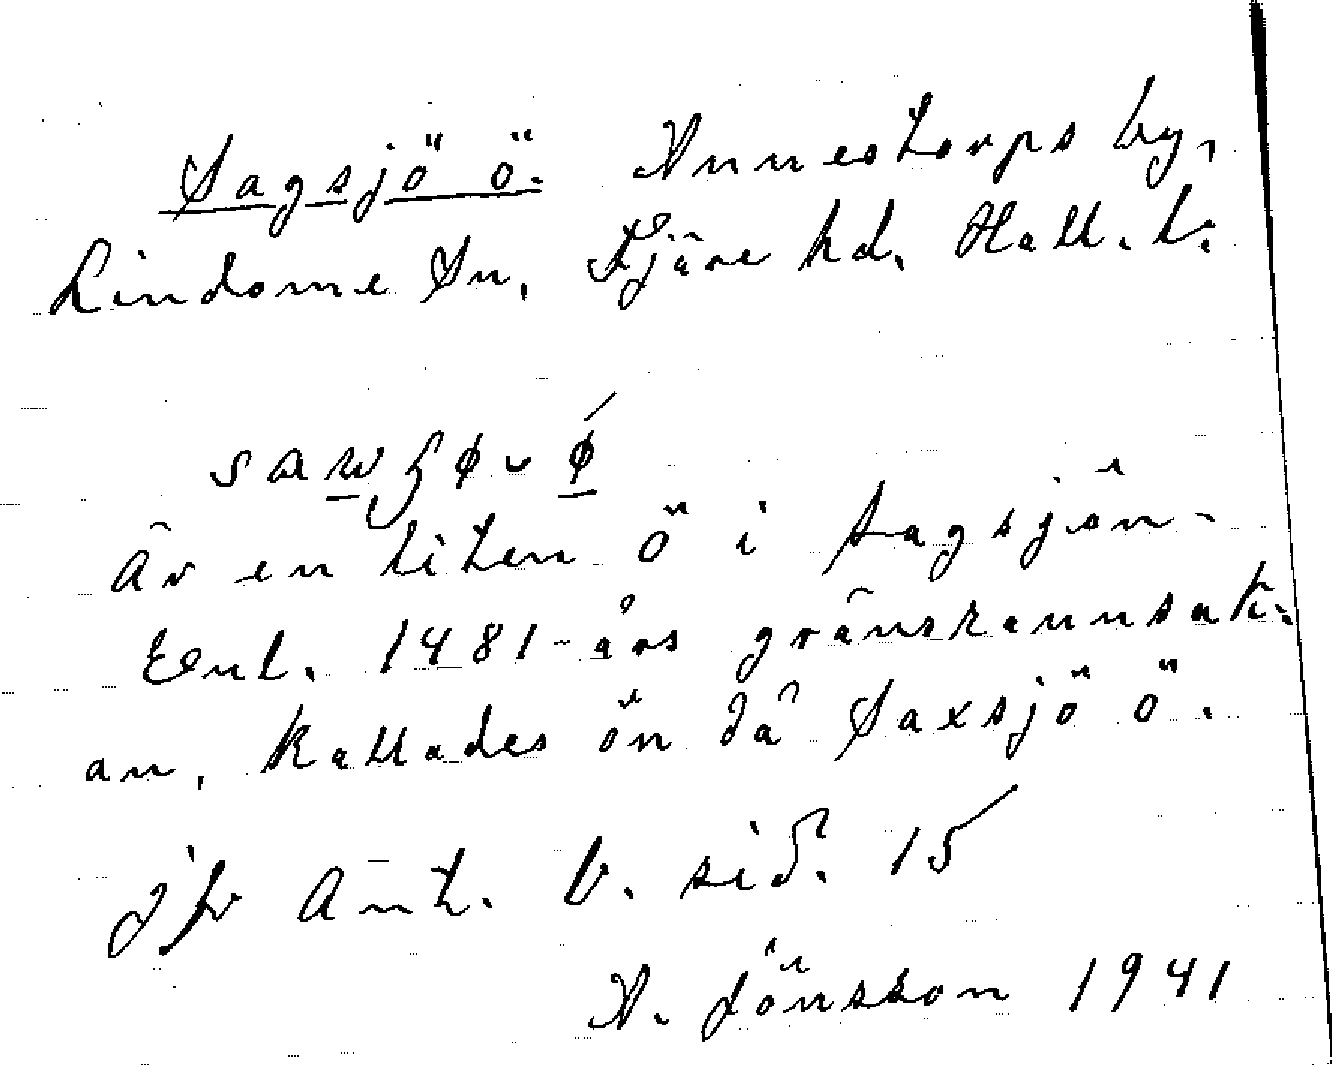 Sagsjö ö. Annestorps by,
Lindome Sn, Fjäre hd. Hall. l.
är en liten ö i Sagsjön-
Enl. 1481-års gränsrannsak-
an, kallades ön då Saxsjö ö.
jfr Ant. b. sid. 15
A. Jönsson 1941